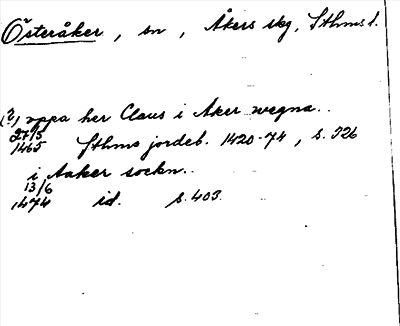 Österåker, sn, Åkers skg, Sthms l.
(?) uppa her Claus i Aker wegna..
27/5
1465 Sthms jordeb. 1420-74, s. 326
i Aaker sockn..
13/6
1474 id. s. 403.